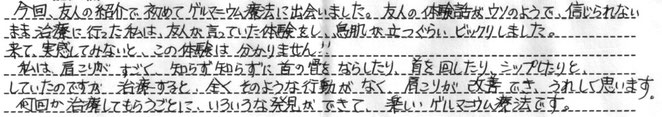 今回、友人の紹介で初めてゲルマニウム療法に出会いました。友人の体験話がウソのようで、信じられない
まま治療に行った私は、友人が言っていた体験をし、鳥肌が立つぐらいビックリしました。
来て、実感してみないと、この体験は分かりません!!
私は、肩こりがすごく、知らず知らずに首の骨をならしたり、首を回したり、シップしたりと、
していたのですが、治療すると、全くそのような行動がなく、肩こりが改善でき、うれしく思います。
何回か治療してもらうごとに、いろいろな発見ができて、楽しいゲルマニウム療法です。